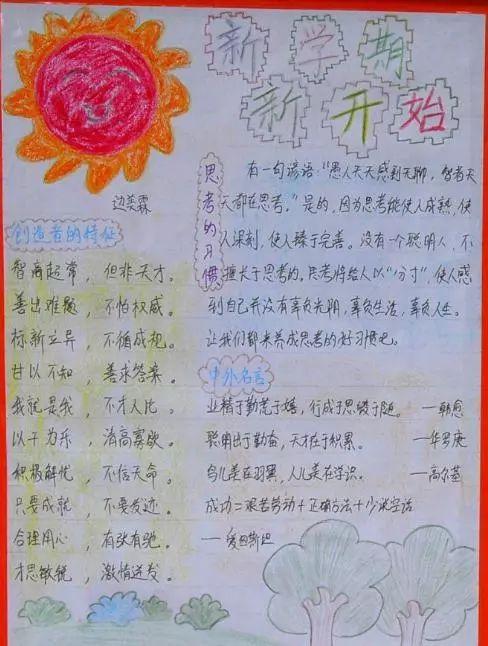 新学期
新开始
边奕霖
创造者的特征
智商超常，但非天才。
善出难题，不怕权威。
标新立异，不循成规。
甘以不知，善求答案。
我就是我，不才人比。
以干为乐，清高寡欲。
积极解忧，不信天命。
只要成就，不要发迹。
合理用心，有张有驰。
才思敏锐，激情迸发。
思考的习惯
有一句谚语："愚人天天感到无聊，智者天
天都在思考。"是的，因为思考能使人成熟，使
人深刻，使人臻于完善。没有一个聪明人，不
擅长于思考的。思考将给人以"分寸"，使人感
到自己并没有辜负光阴，辜负生活，辜负人生。
让我们都来养成思考的好习惯吧。
中外名言
业精于勤荒于嬉，行成于思毁于随。 —韩愈
聪明出于勤奋，天才在于积累。 —华罗庚
鸟儿美在羽翼，人儿美在学识。 —高尔基
成功=艰苦劳动+正确方法+少说空话
—爱因斯坦